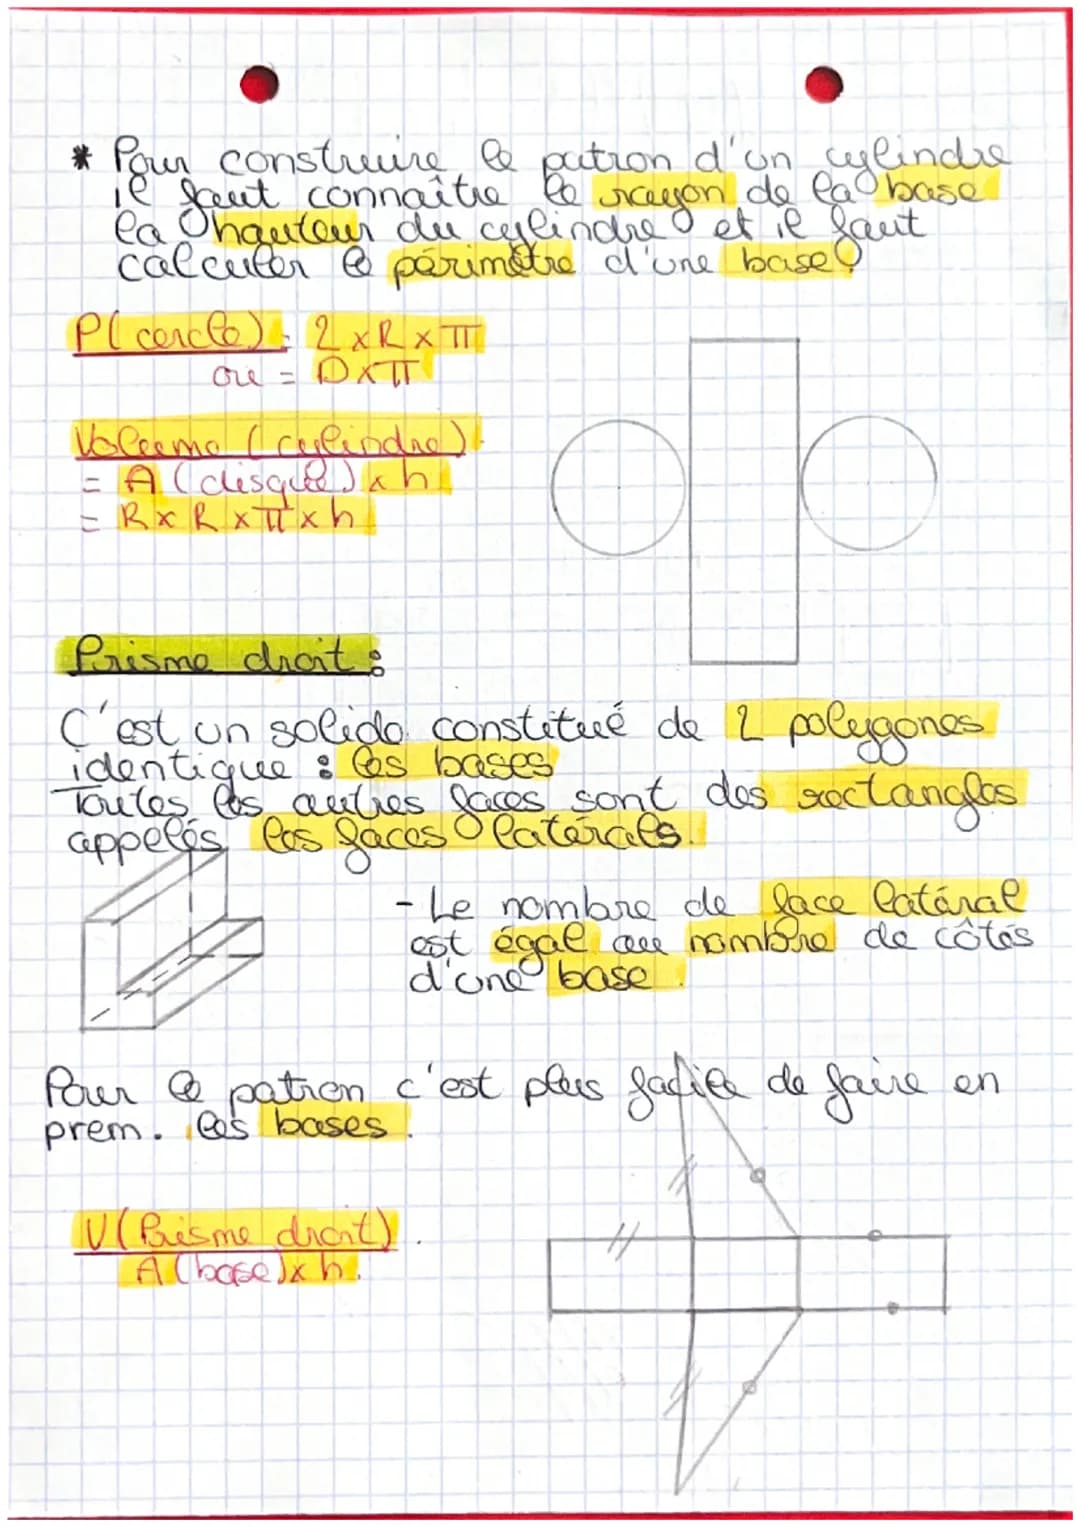 * Pour construire le patron d'un cylindre
il faut connaître le rayon de la base
la hauteur du cylindre et il faut
calculer le périmètre d'une base.
P(cercle) = 2 x R x π
ou = D x π
Volume (cylindre)
= A (disque) x h
= R x R x π x h
Prisme droit :
C'est un solide constitué de 2 polygones
identique : les bases
Toutes les autres faces sont des rectangles
appelés les faces latérals.
- Le nombre de face latéral
est égal au nombre de côtés
d'une base.
Pour le patron c'est plus facile de faire en
prem. les bases.
V(Prisme droit)
A(base) x h.